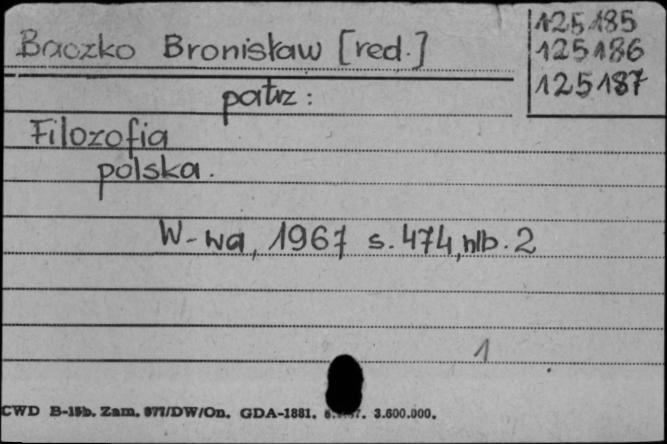 125185
Baczko Bronisław [red.]
125186
125187
patrz:
Filozofia
polska.
W-wa, 1967 s. 474, nlb. 2
1
CWD B-15b. Zam. 977/DW/On. GDA-1881. 3.600.000.